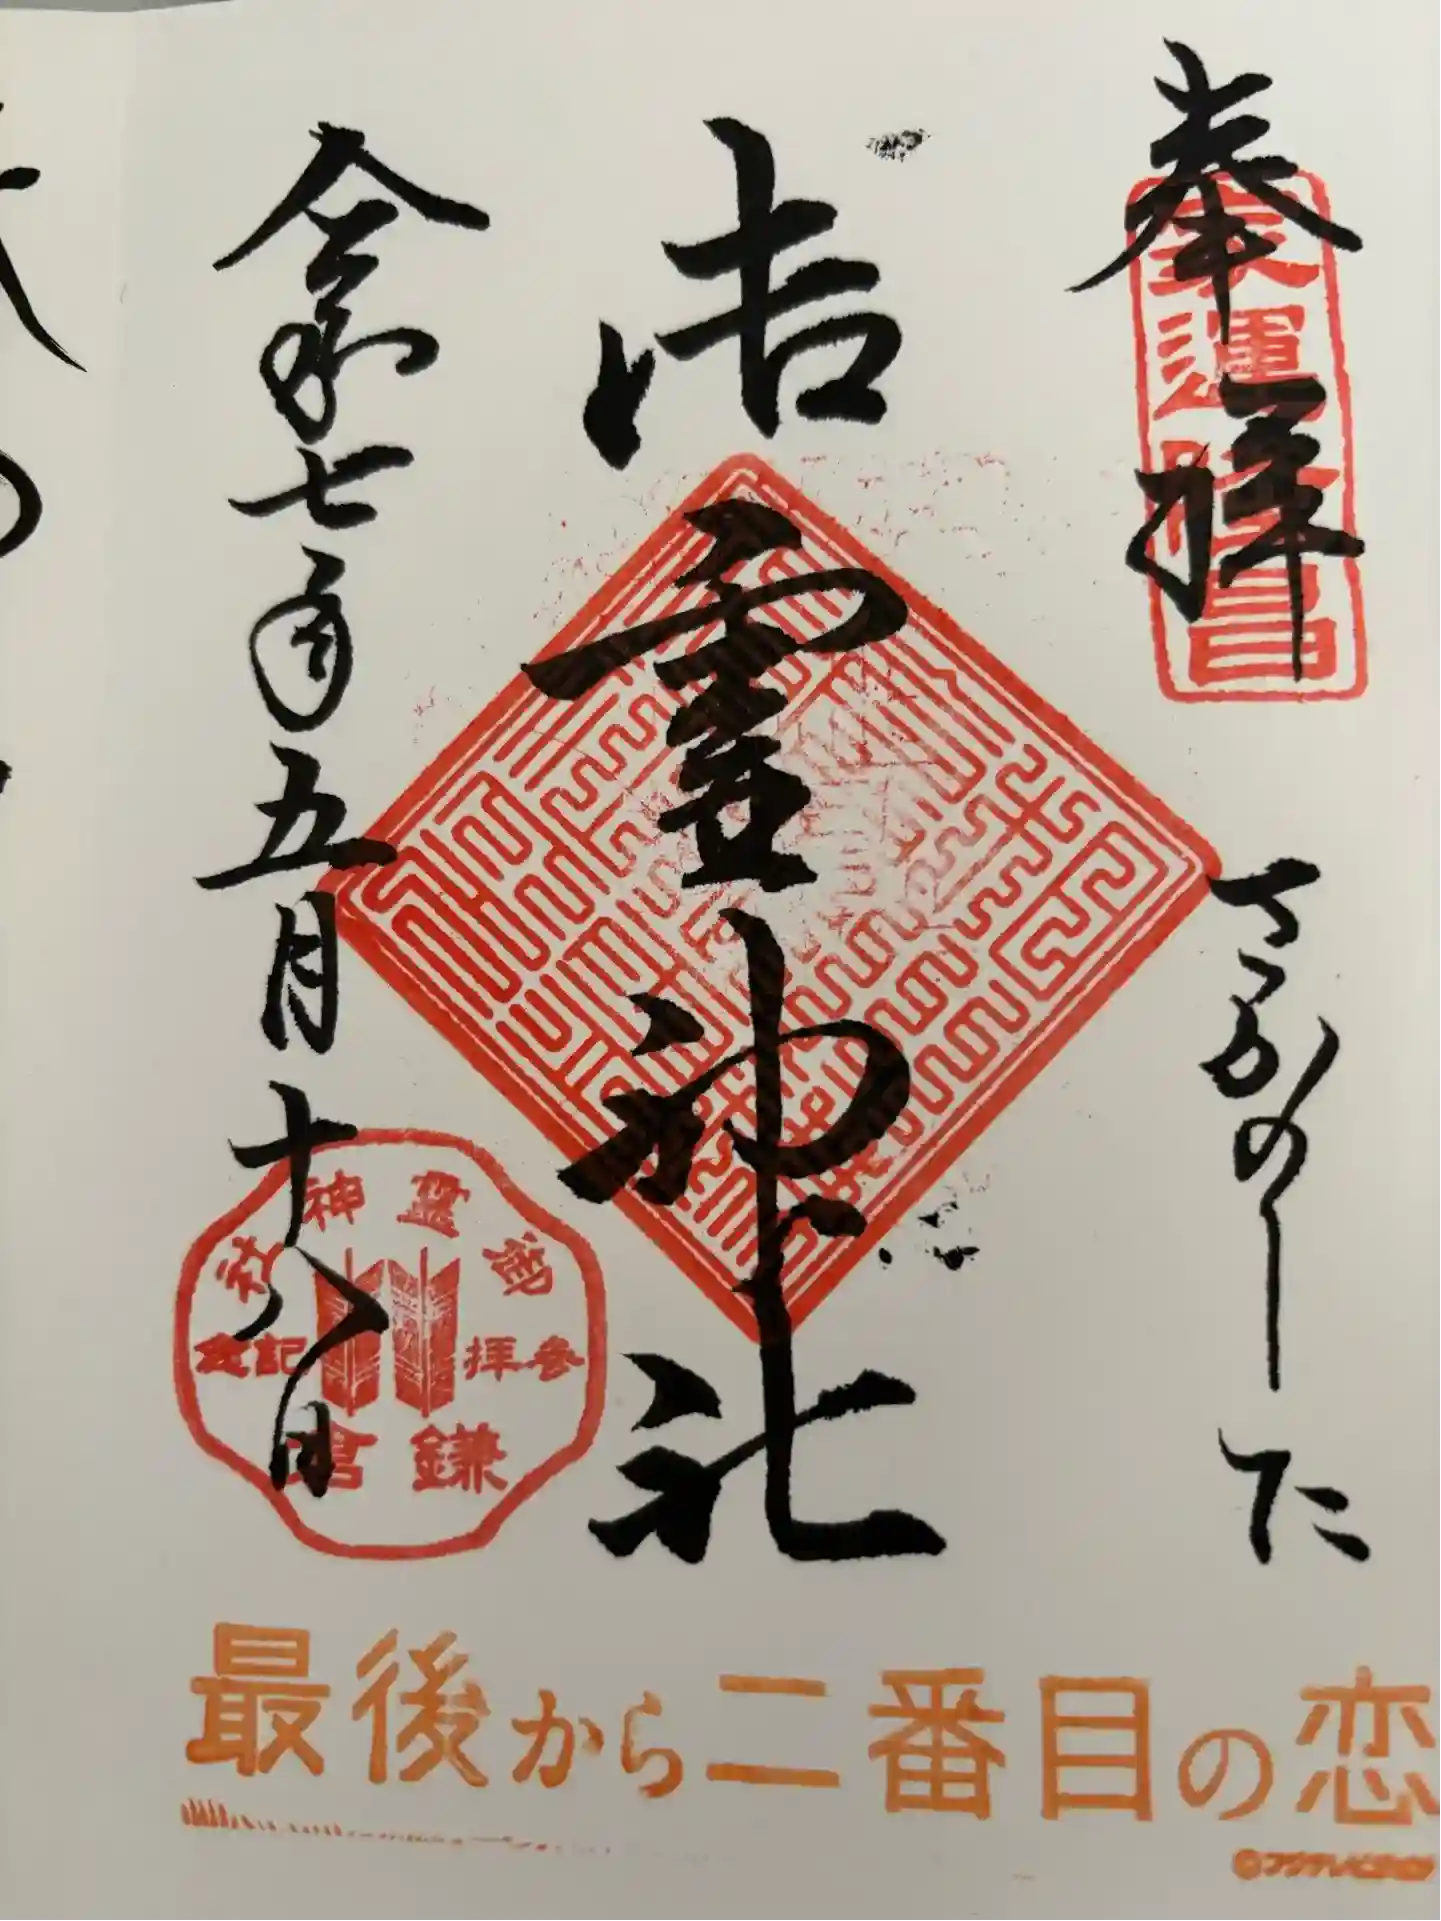 奉拝
家運隆昌
さかのした
御霊神社
令和七年五月十八日
御霊神社
参拝記念
鎌倉
最後から二番目の恋
©フジテレビ